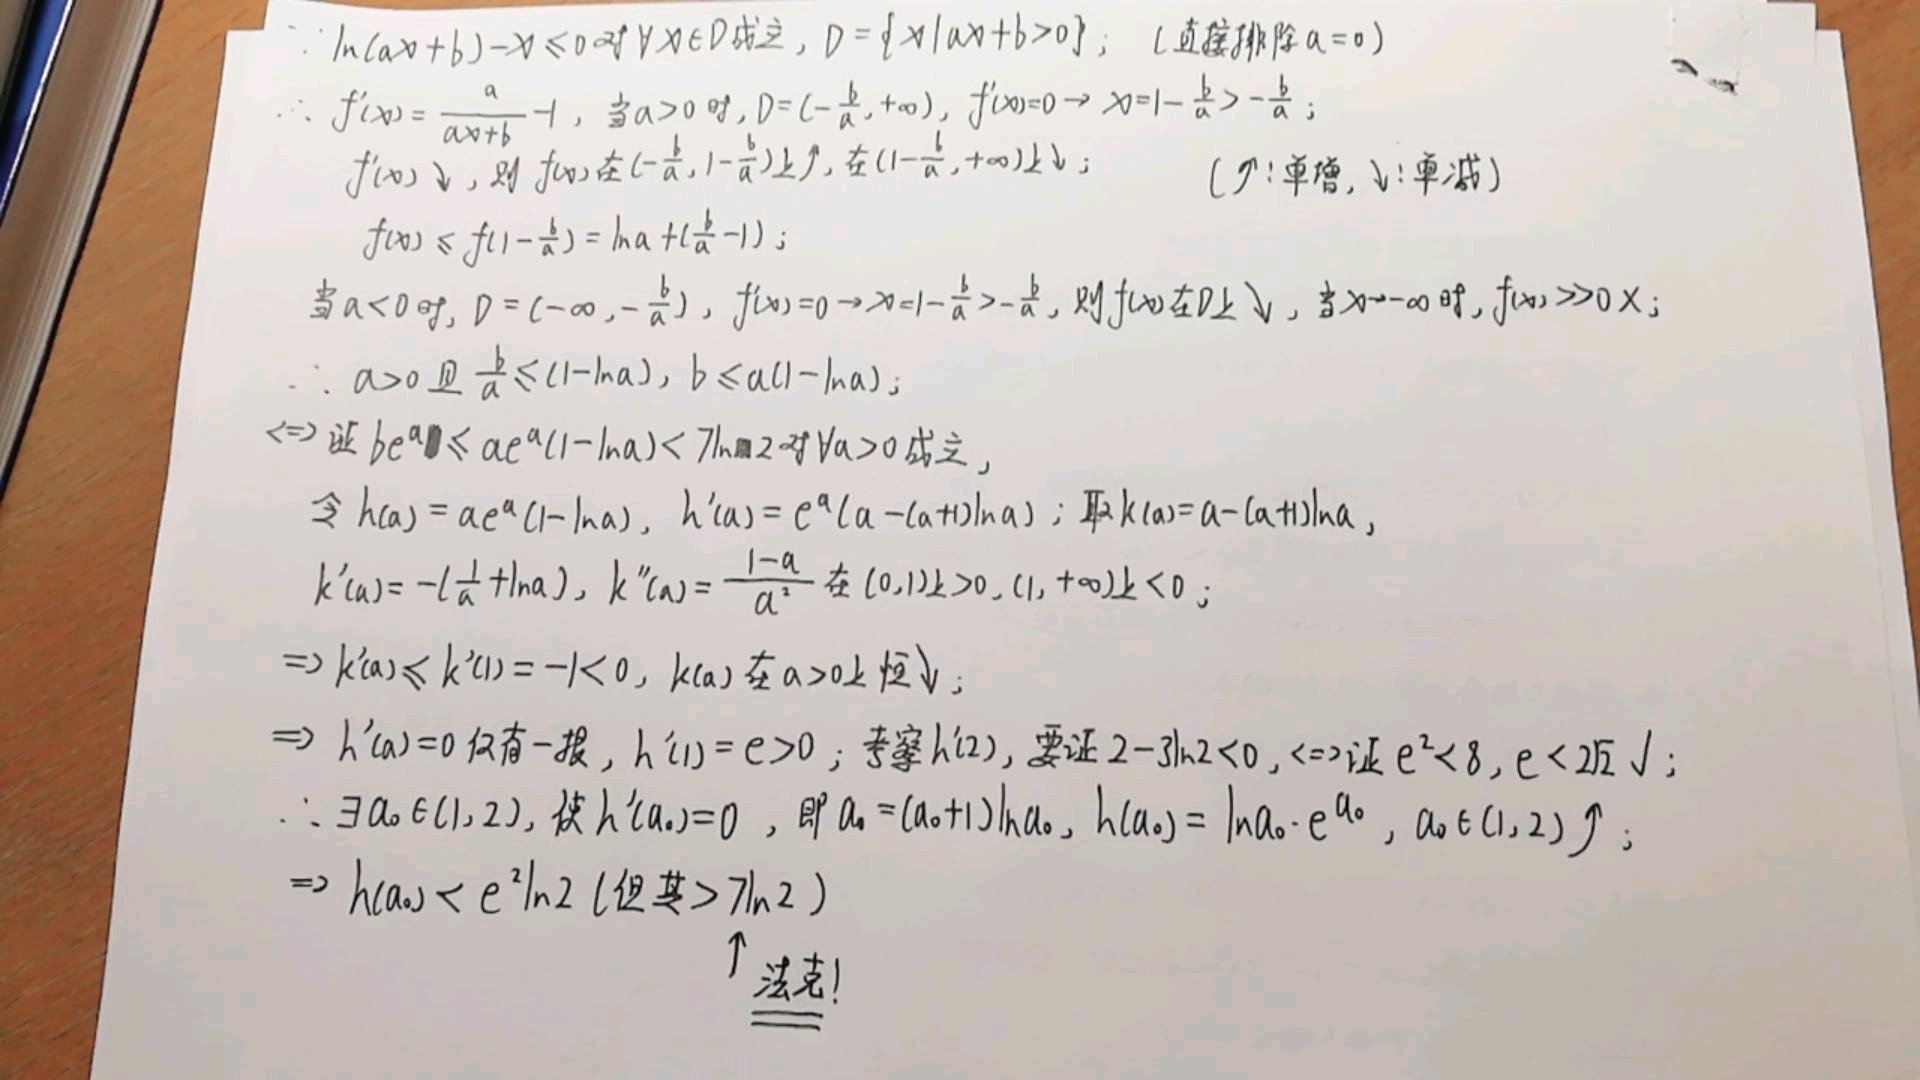 ∵ ln(ax+b)-x≤0对∀x∈D成立, D={x|ax+b>0}; (直接排除a=0)
∴ f'(x)=a/(ax+b)-1, 当a>0时, D=(-b/a,+∞), f'(x)=0→x=1-b/a>-b/a;
f'(x)↓, 则f(x)在(-b/a,1-b/a)上↑, 在(1-b/a,+∞)上↓; (↑:单增, ↓:单减)
f(x)≤f(1-b/a)=lna+(b/a-1);
当a<0时, D=(-∞,-b/a), f'(x)=0→x=1-b/a>-b/a, 则f(x)在D上↓, 当x→-∞时, f(x)>>0×;
∴ a>0且b/a≤(1-lna), b≤a(1-lna);
<=>证beᵃ≤aeᵃ(1-lna)<7ln2对∀a>0成立,
令h(a)=aeᵃ(1-lna), h'(a)=eᵃ(a-(a+1)lna); 取k(a)=a-(a+1)lna,
k'(a)=-(1/a+lna), k''(a)=(1-a)/a²在(0,1)上>0, (1,+∞)上<0;
=>k'(a)≤k'(1)=-1<0, k(a)在a>0上恒↓;
=>h'(a)=0仅有一根, h'(1)=e>0; 考察h'(2), 要证2-3ln2<0, <=>证e²<8, e<2√2 √;
∴ ∃a₀∈(1,2), 使h'(a₀)=0, 即a₀=(a₀+1)lna₀, h(a₀)=lna₀·e^a₀, a₀∈(1,2)↑;
=>h(a₀)<e²ln2(但其>7ln2)
↑法克!